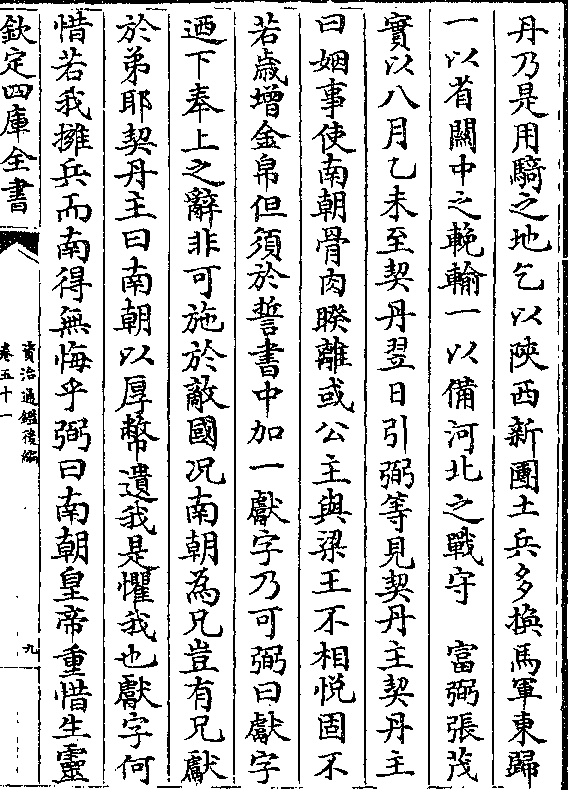 丹乃是用騎之地乞以陜西新團土兵多換馬軍東歸
一以省關中之輓輸一以備河北之戰守　富弼張茂
實以八月乙未至契丹翌日引弼等見契丹主契丹主
曰姻事使南朝骨肉暌離或公主與梁王不相悅固不
若歳增金帛但須於誓書中加一獻字乃可弼曰獻字
迺下奉上之辭非可施於敵國况南朝為兄豈有兄獻
於弟耶契丹主曰南朝以厚幣遺我是懼我也獻字何
惜若我擁兵而南得無悔乎弼曰南朝皇帝重惜生靈
欽定四庫全書
資治通鑑後編
卷五十一
九